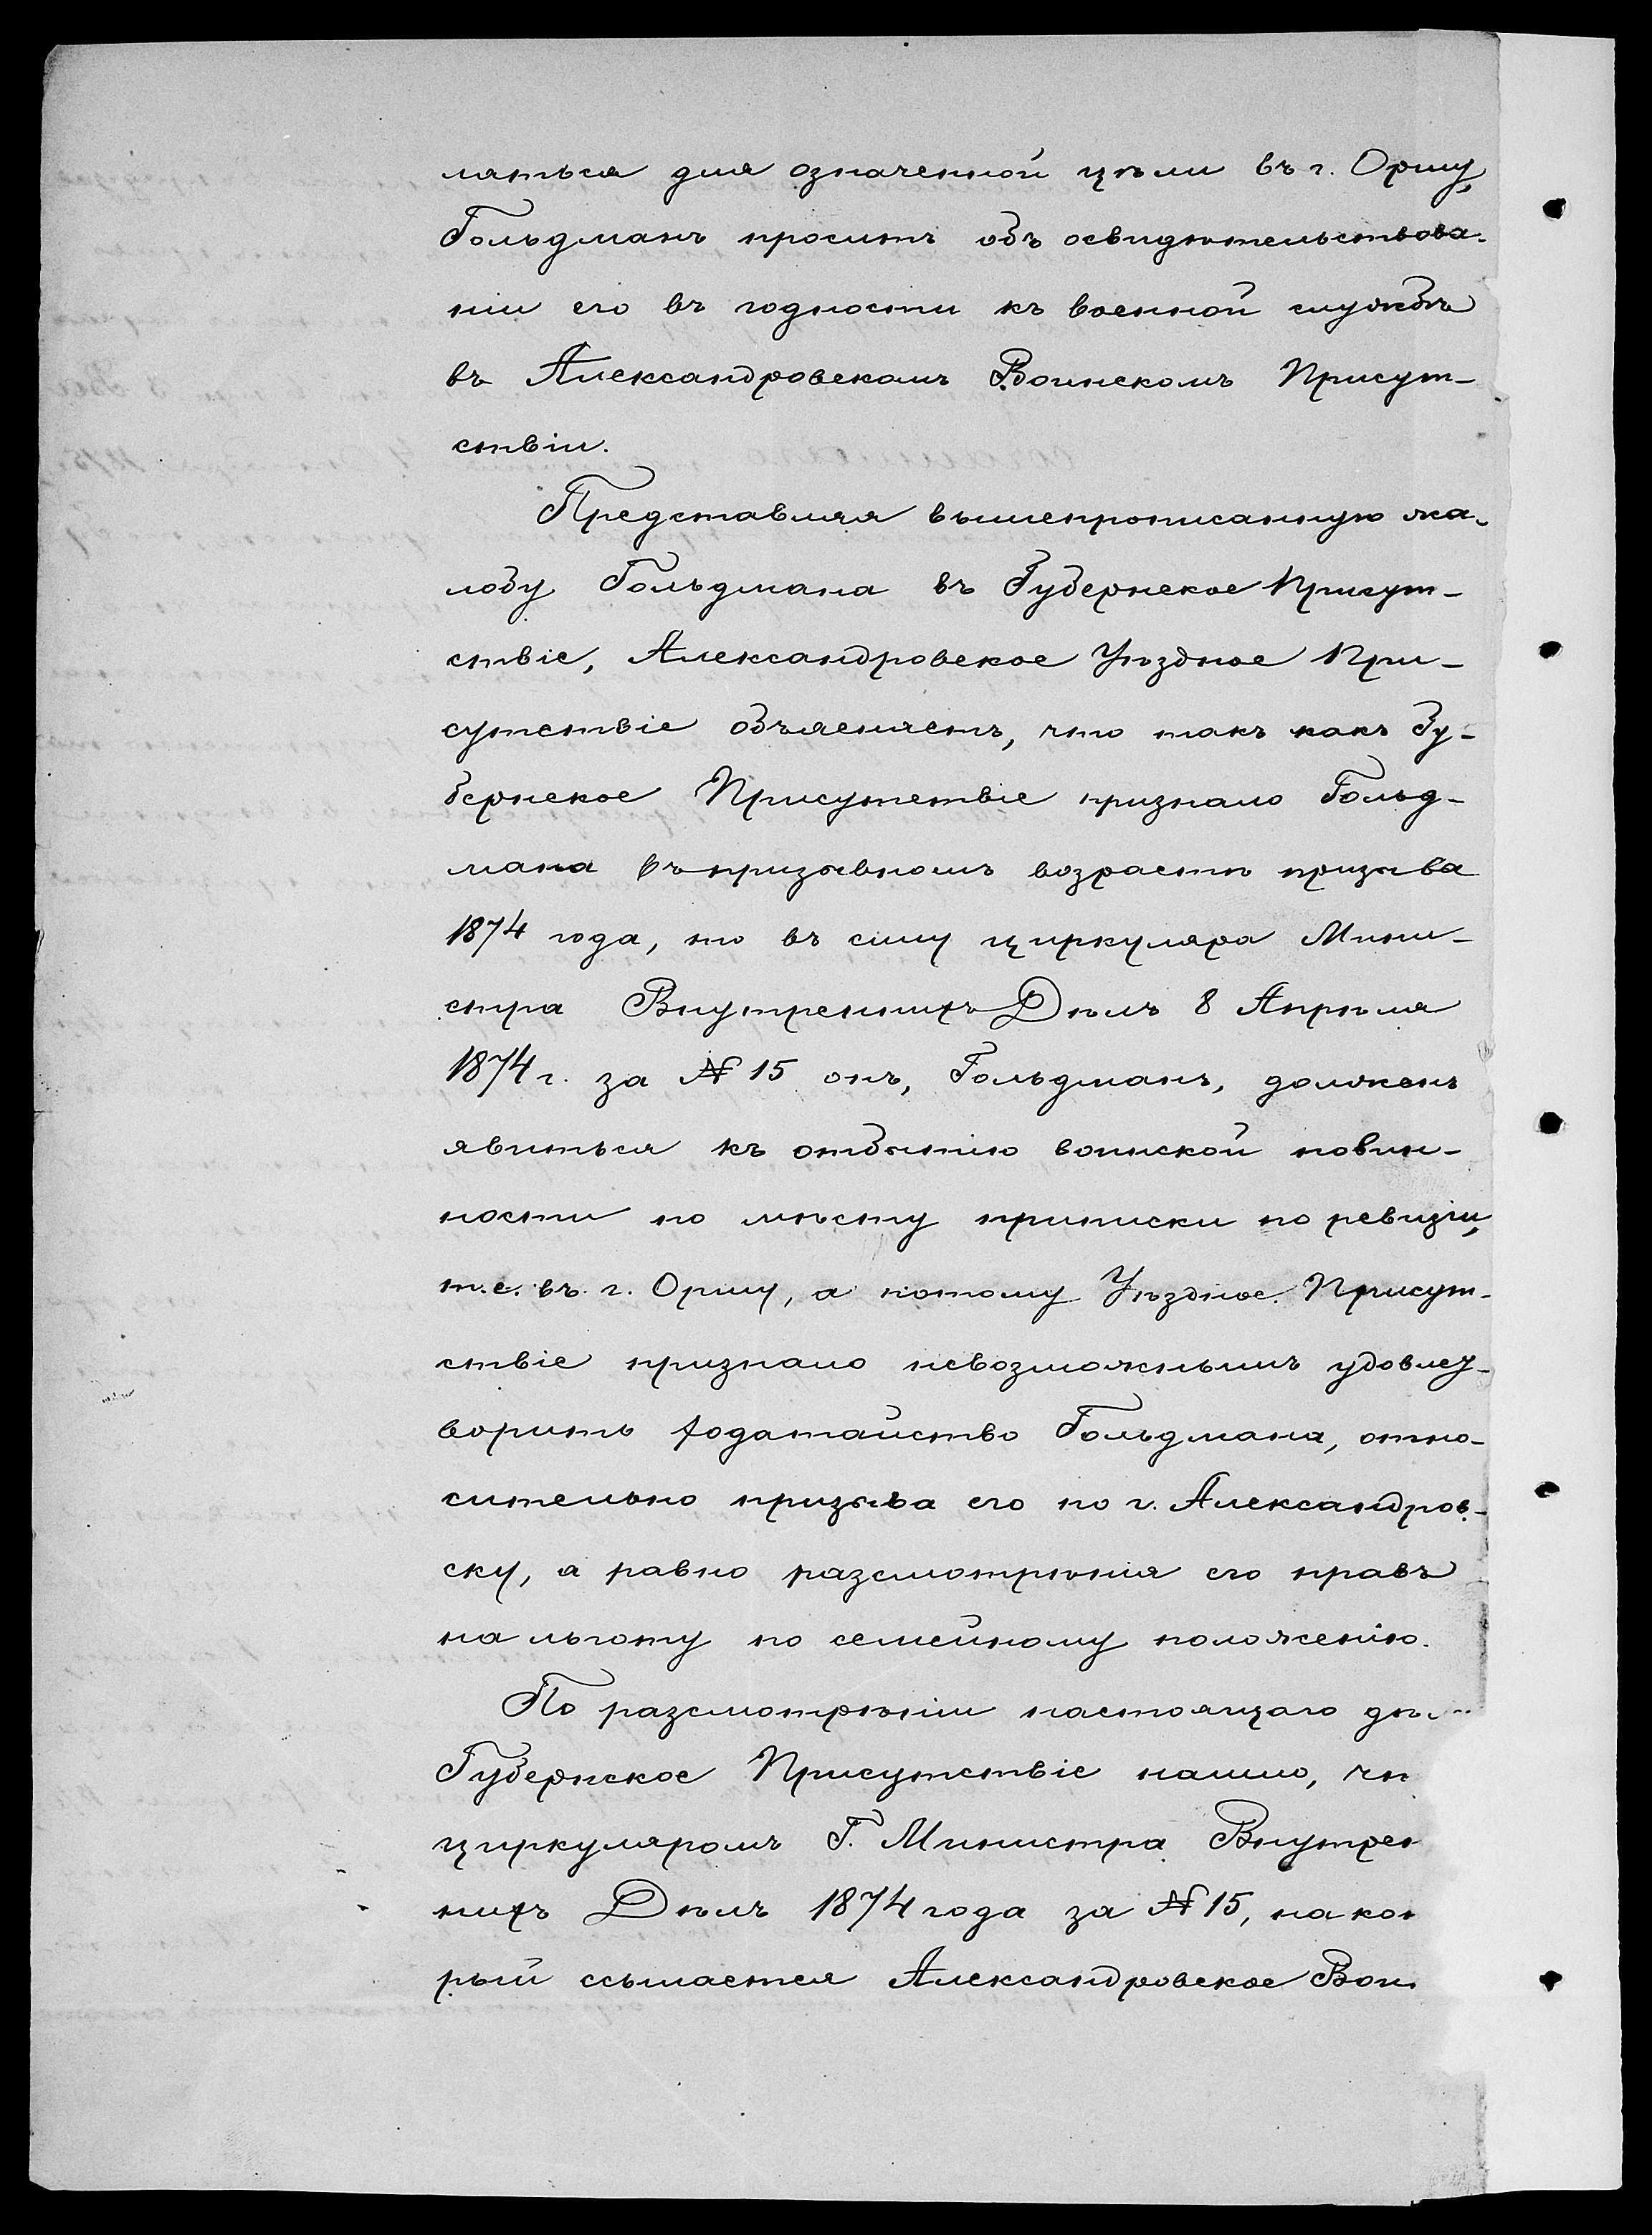 ляться для означенной цѣли въ г. Оршу,
Гольдманъ проситъ объ освидѣтельствова-
ніи его въ годности къ военной службѣ
въ Александровскомъ Воинскомъ Присут-
ствіи.
Представляя вышепрописанную жа-
лобу Гольдмана въ Губернское Присут-
ствіе, Александровское Уѣздное При-
сутствіе объясняетъ, что такъ какъ Гу-
бернское Присутствіе признало Гольд-
мана въ призывномъ возрастѣ призыва
1874 года, то въ силу циркуляра Мини-
стра Внутреннихъ Дѣлъ 8 Апрѣля
1874 г. за № 15 онъ, Гольдманъ, долженъ
явиться къ отбытію воинской повин-
ности по мѣсту приписки по ревизіи,
т.е. въ г. Оршу, а потому Уѣздное Присут-
ствіе признало невозможнымъ удовлет-
ворить ходатайство Гольдмана, отно-
сительно призыва его по г. Александров-
ску, а равно разсмотрѣнія его правъ
на льготу по семейному положенію.
По разсмотрѣніи настоящаго дѣ
Губернское Присутствіе нашло, чт
циркуляромъ Г. Министра Внутрен
нихъ Дѣлъ 1874 года за № 15, на кот
рый ссылается Александровское Вои